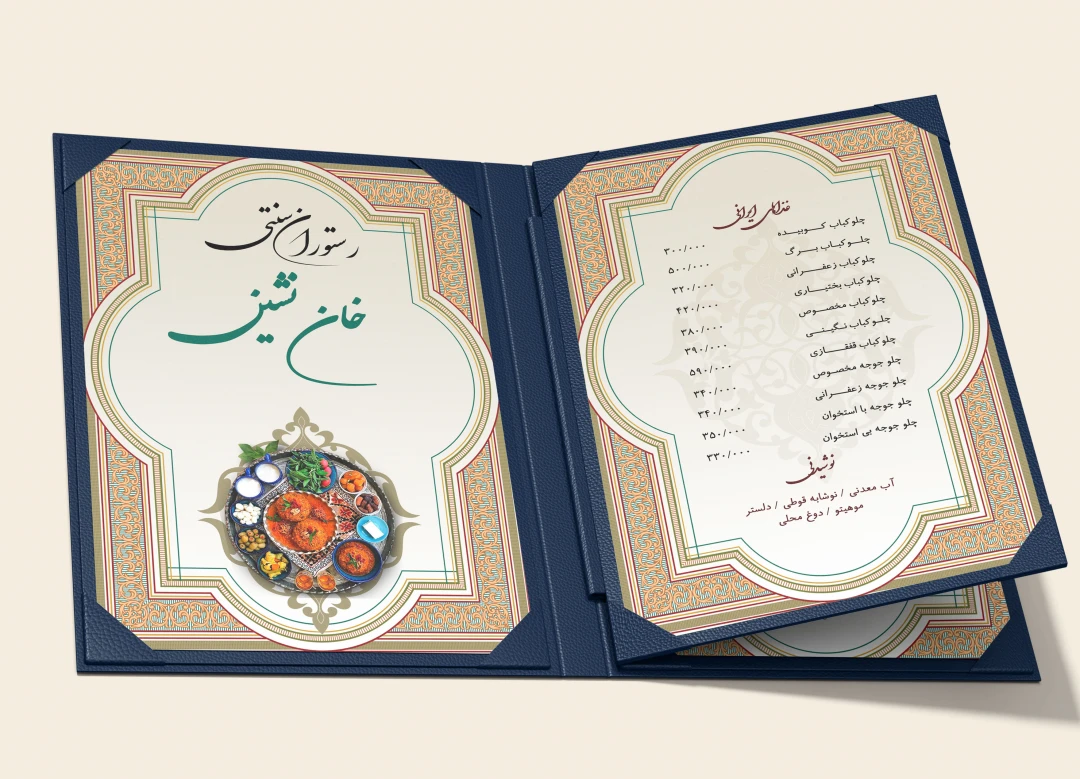 رستوران سنتی
خان نشین
غذاهای ایرانی
چلو کباب کوبیده ۳۰۰/۰۰۰
چلو کباب برگ ۵۰۰/۰۰۰
چلو کباب زعفرانی ۳۲۰/۰۰۰
چلو کباب بختیاری ۴۲۰/۰۰۰
چلو کباب مخصوص ۳۸۰/۰۰۰
چلو کباب نگینی ۳۹۰/۰۰۰
چلو کباب قفقازی ۵۹۰/۰۰۰
چلو جوجه مخصوص ۳۴۰/۰۰۰
چلو جوجه زعفرانی ۳۴۰/۰۰۰
چلو جوجه با استخوان ۳۵۰/۰۰۰
چلو جوجه بی استخوان ۳۳۰/۰۰۰
نوشیدنی
آب معدنی / نوشابه قوطی / دلستر
موهیتو / دوغ محلی